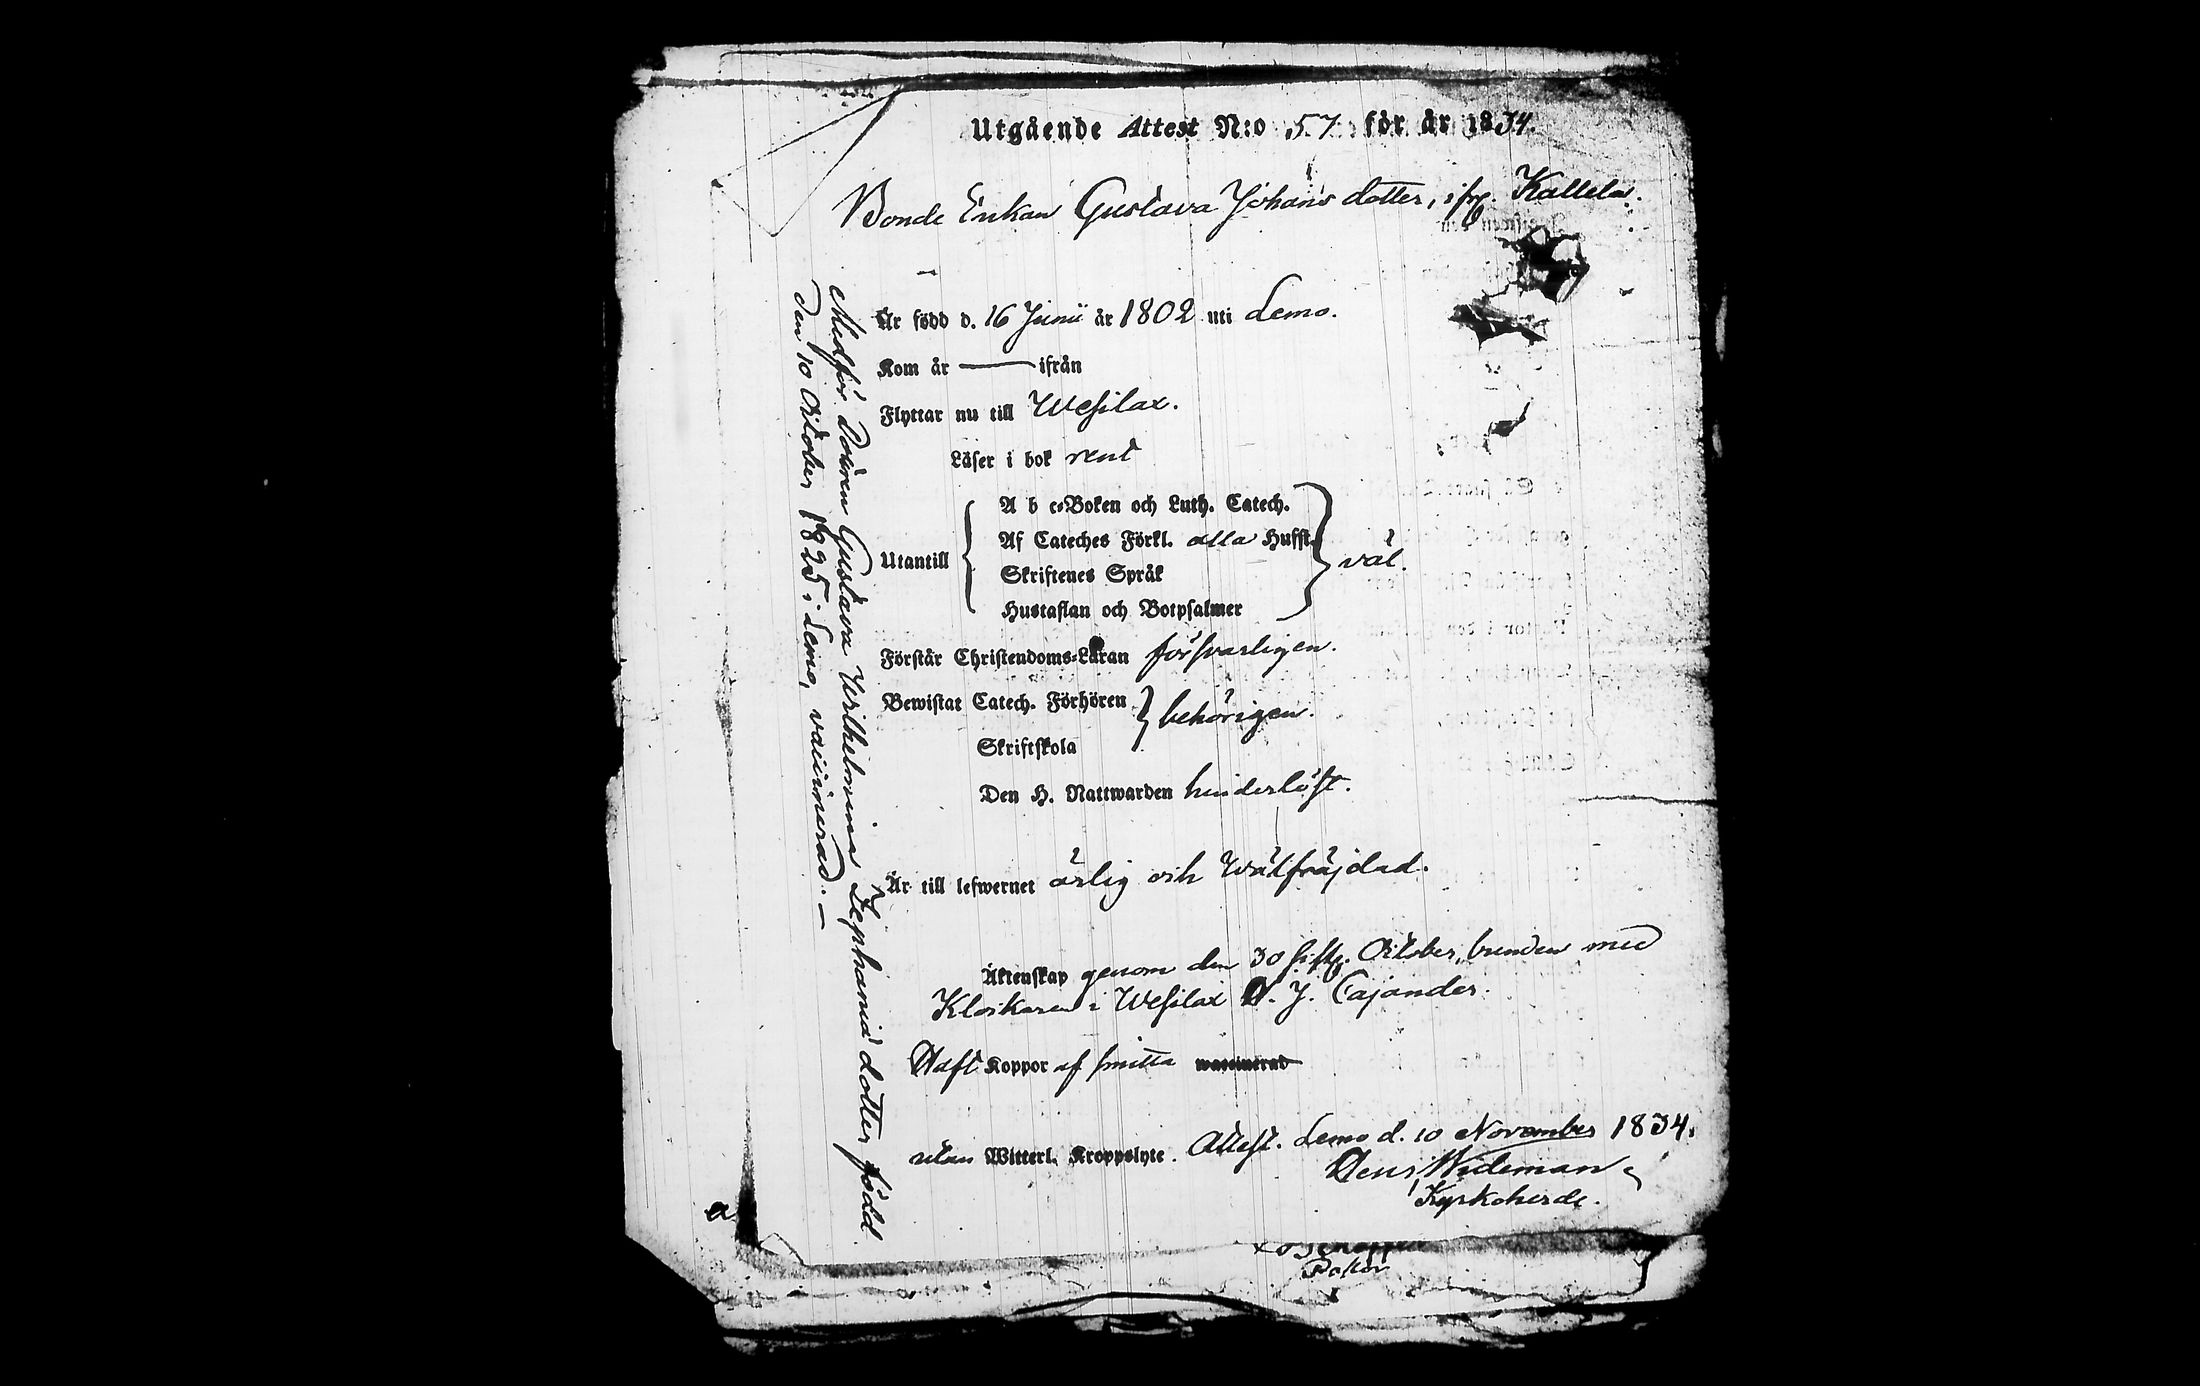 Utgående Attest N:o 57 för år 1834.
Bonde Enkan Gustava Johans dotter, ifrn. Kallela.
Är född d. 16 Junii år 1802 uti Lemo.
Kom år — ifrån
Flyttar nu till Wesilax.
Läser i bok rent
Utantill
A b c-Boken och Luth. Catech.
Af Cateches Förkl. alla Hufst.
Skriftenes Språk
Hustaflan och Botpsalmer
väl.
Förstår Christendoms-Läran försvarligen.
Bewistat Catech. Förhören
Skriftskola
behörigen.
Den H. Nattwarden hinderlöst.
Är till lefwernet ärlig och Wälfräjdad.
Äktenskap genom den 30 October, bunden med
Klockaren i Wesilax J. Cajander.
Haft Koppor af smitta waccinerad
utan Witterl. Kroppslyte. Attest. Lemo d. 10 November 1834.
Wideman
Kyrkoherde.
Medför Dottren Gustava Wilhelmina Zephania dotter född
den 10 October 1825 i Lemo, vaccinerad. —
a
Pastor